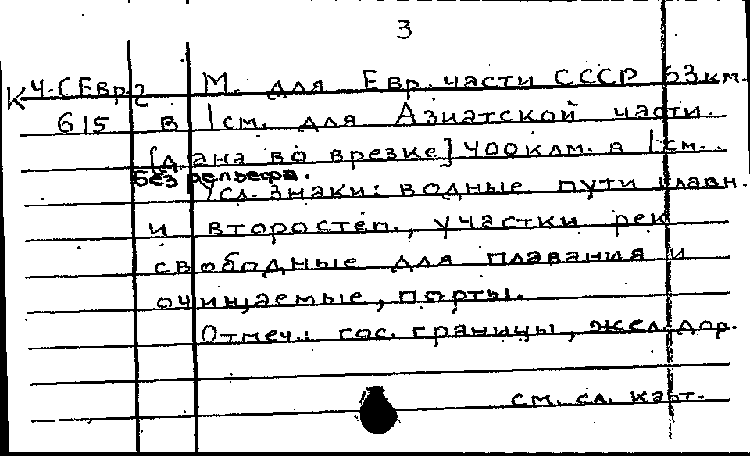 3
К 4-СЕвр.2 М. для Евр. части СССР 53 км.
615 в 1 см. для Азиатской части.
[дана во врезке] 400 клм. в 1 см.
без рельефа.
Усл. знаки: водные пути главн.
и второстеп., участки рек
свободные для плавания и
очищаемые, порты.
Отмеч.: гос. границы, жел. дор.
см. сл. карт.